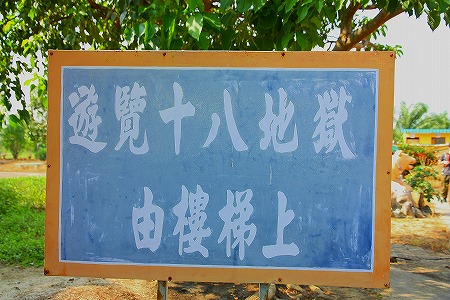 遊覽十八地獄
由樓梯上